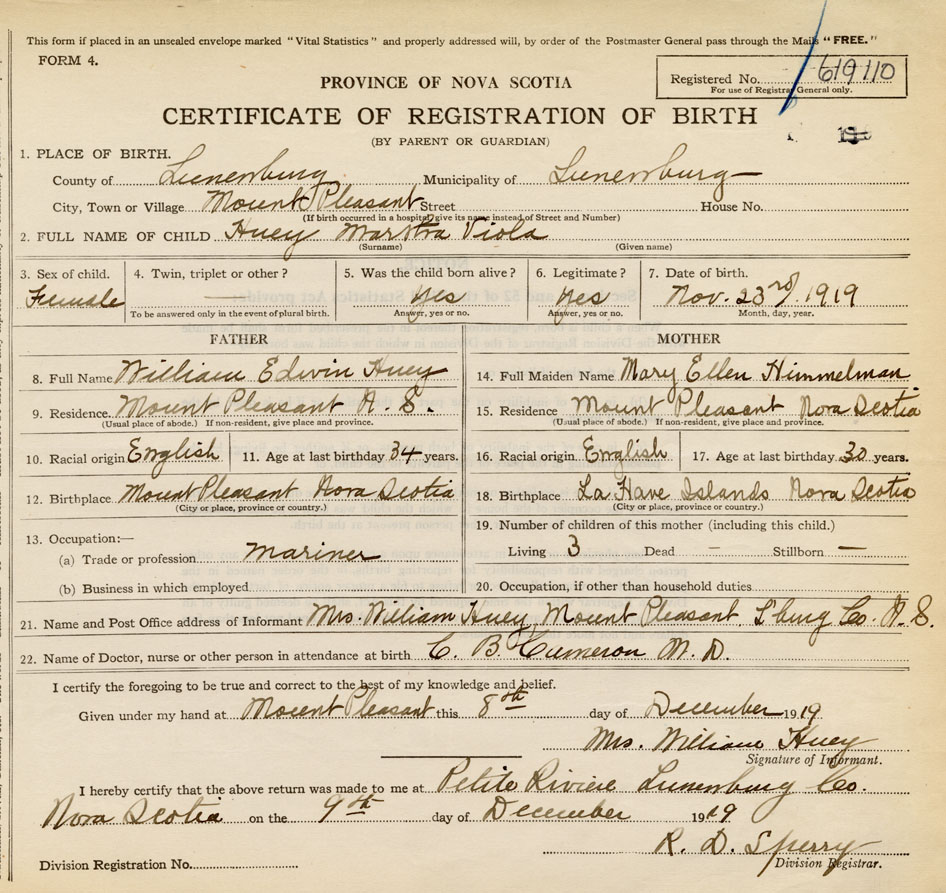 This form if placed in an unsealed envelope marked "Vital Statistics" and properly addressed will, by order of the Postmaster General pass through the Mails "FREE."
FORM 4.
Registered No. 619110
For use of Registrar General only.
PROVINCE OF NOVA SCOTIA
CERTIFICATE OF REGISTRATION OF BIRTH
(BY PARENT OR GUARDIAN)
1. PLACE OF BIRTH.
County of Lunenburg Municipality of Lunenburg
City, Town or Village Mount Pleasant Street House No.
(If birth occurred in a hospital, give its name instead of Street and Number)
2. FULL NAME OF CHILD Huey Martha Viola
(Surname) (Given name)
3. Sex of child. 4. Twin, triplet or other? 5. Was the child born alive? 6. Legitimate? 7. Date of birth.
Female — Yes Yes Nov. 23rd. 1919
To be answered only in the event of plural birth. Answer, yes or no. Answer, yes or no. Month, day, year.
FATHER MOTHER
8. Full Name William Edwin Huey 14. Full Maiden Name Mary Ellen Himmelman
9. Residence. Mount Pleasant N. S. 15. Residence Mount Pleasant Nova Scotia
(Usual place of abode.) If non-resident, give place and province. (Usual place of abode.) If non-resident, give place and province.
10. Racial origin English 11. Age at last birthday 34 years. 16. Racial origin English 17. Age at last birthday 30 years.
12. Birthplace Mount Pleasant Nova Scotia 18. Birthplace La Have Islands Nova Scotia
(City or place, province or country.) (City or place, province or country.)
13. Occupation:— 19. Number of children of this mother (including this child.)
(a) Trade or profession Mariner Living 3 Dead — Stillborn —
(b) Business in which employed 20. Occupation, if other than household duties
21. Name and Post Office address of Informant Mrs. William Huey, Mount Pleasant L'burg Co. N. S.
22. Name of Doctor, nurse or other person in attendance at birth C. B. Cumeron M. D.
I certify the foregoing to be true and correct to the best of my knowledge and belief.
Given under my hand at Mount Pleasant this 8th day of December 1919
Mrs. William Huey
Signature of Informant.
I hereby certify that the above return was made to me at Petite Riviere Lunenburg Co.
Nova Scotia on the 9th day of December 1919
R. D. Sperry
Division Registrar.
Division Registration No.